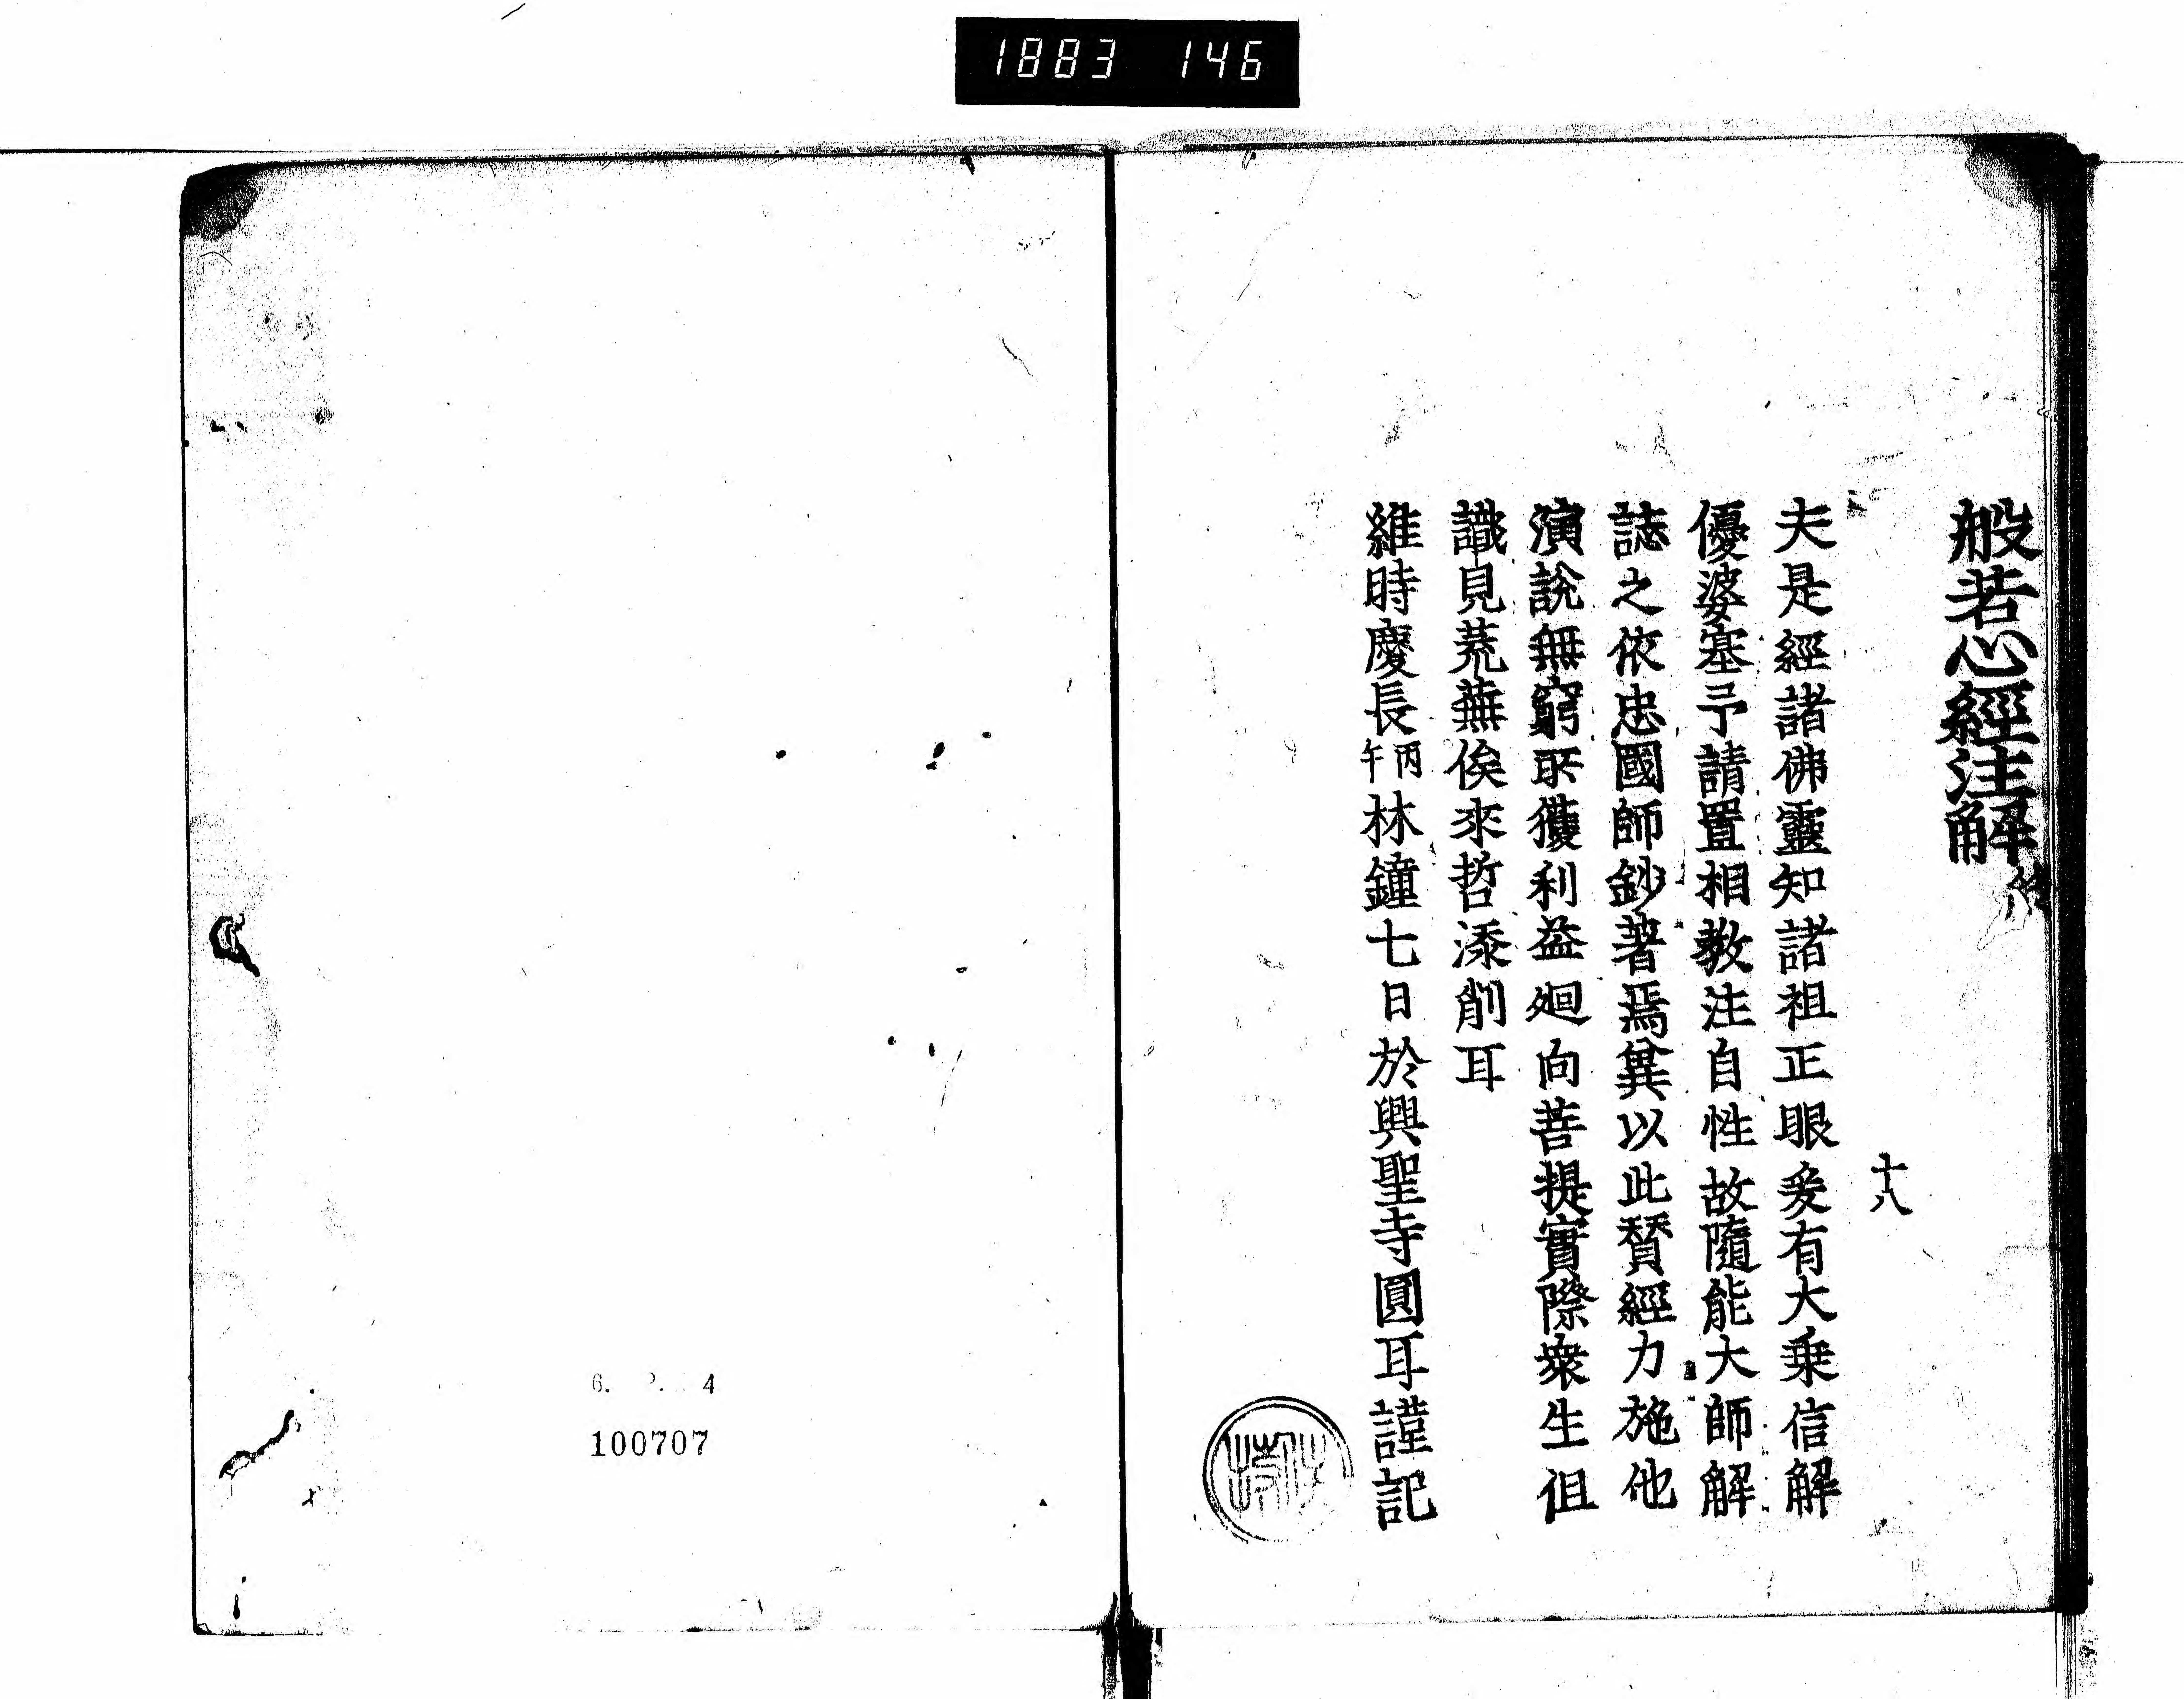 1883 146
般若心經注解終
十八
夫是經諸佛靈知諸祖正眼爰有大乗信解
優婆塞予請置相教注自性故隨能大師解
誌之依忠國師鈔著焉冀以此賛經力施他
演說無窮所獲利益廻向菩提實際衆生徂
識見荒蕪俟來哲添削耳
維時慶長丙午林鐘七日於興聖寺圓耳謹記
100707